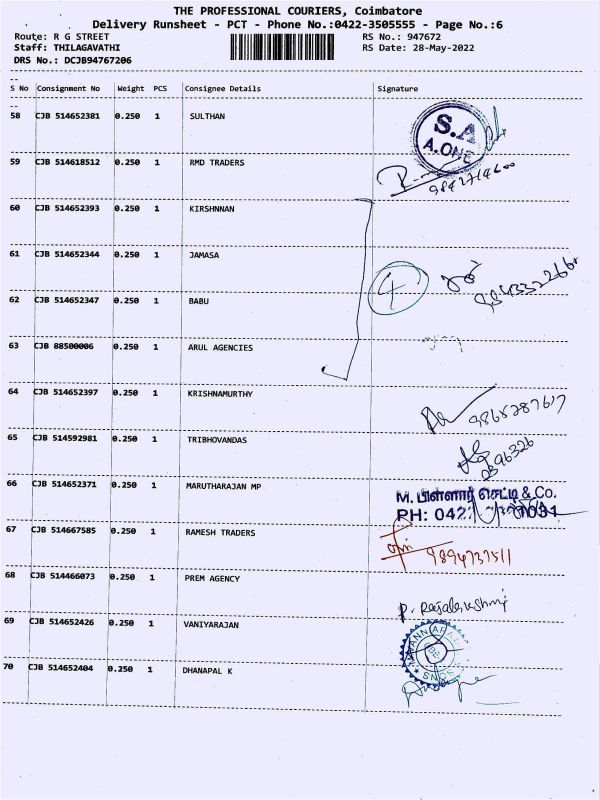 THE PROFESSIONAL COURIERS, Coimbatore
Delivery Runsheet - PCT - Phone No.:0422-3505555 - Page No.:6
Route: R G STREET RS No.: 947672
Staff: THILAGAVATHI RS Date: 28-May-2022
DRS No.: DCJB94767206
S No Consignment No Weight PCS Consignee Details Signature
58 CJB 514652381 0.250 1 SULTHAN
S.A
A.ONE
59 CJB 514618512 0.250 1 RMD TRADERS
60 CJB 514652393 0.250 1 KIRSHNNAN
61 CJB 514652344 0.250 1 JAMASA
4
62 CJB 514652347 0.250 1 BABU
63 CJB 88500006 0.250 1 ARUL AGENCIES
64 CJB 514652397 0.250 1 KRISHNAMURTHY
65 CJB 514592981 0.250 1 TRIBHOVANDAS
66 CJB 514652371 0.250 1 MARUTHARAJAN MP
M. பிள்ளார் செட்டி & Co.
PH: 042
67 CJB 514667585 0.250 1 RAMESH TRADERS
9894737511
68 CJB 514466073 0.250 1 PREM AGENCY
P. Rajalakshmi
69 CJB 514652426 0.250 1 VANIYARAJAN
70 CJB 514652404 0.250 1 DHANAPAL K